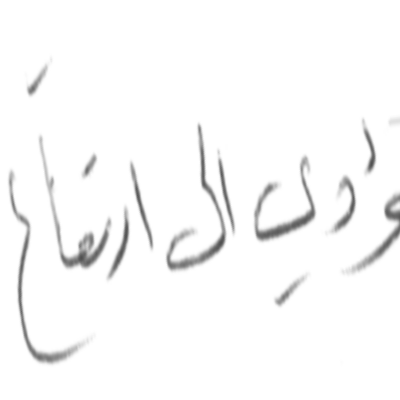 يؤدي الى ارتفاع